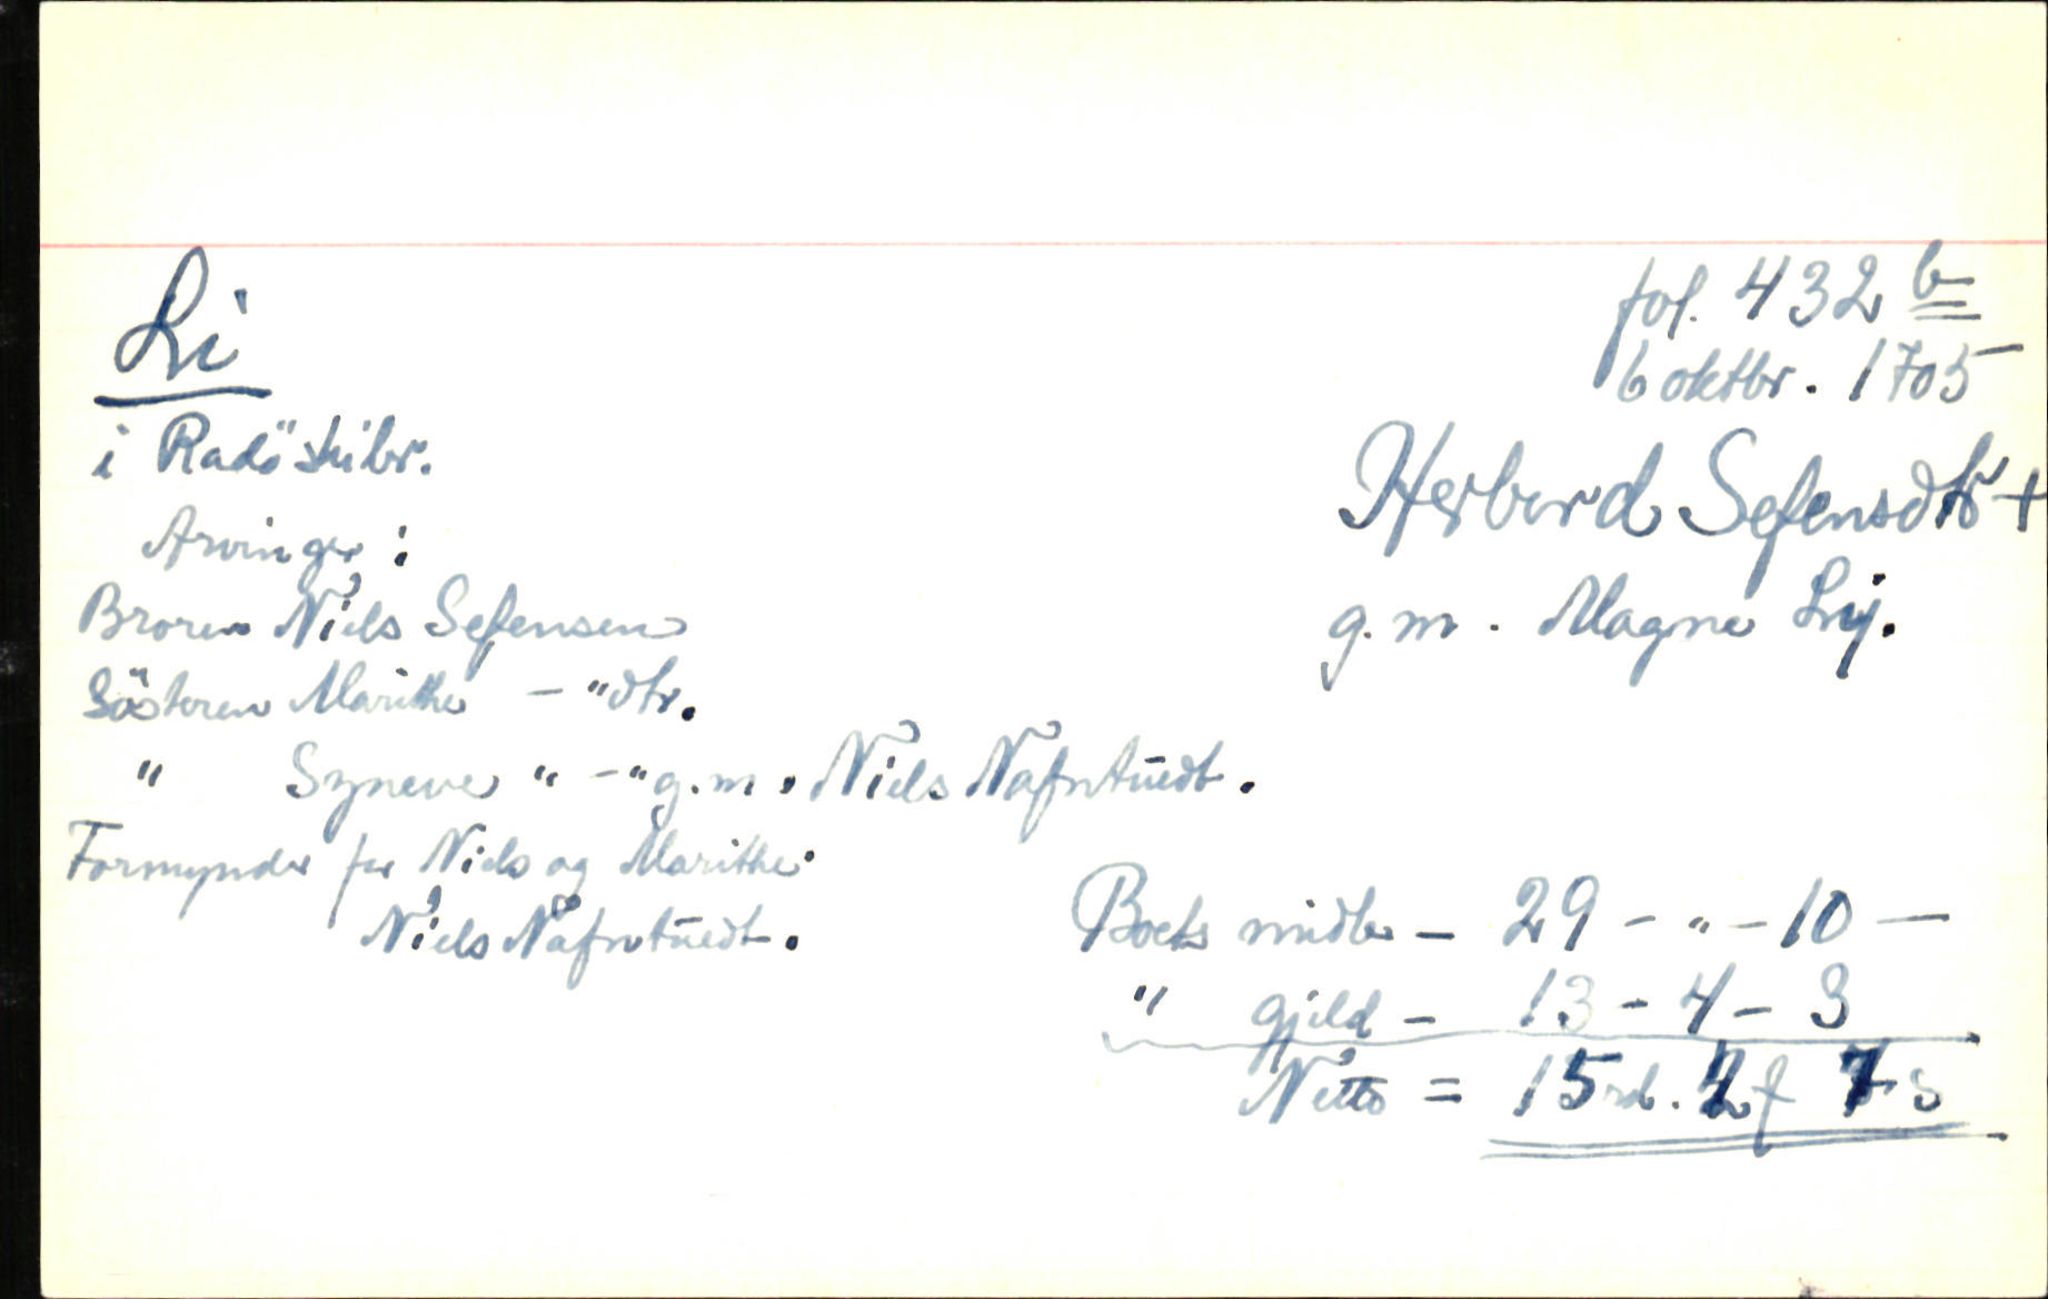 Li
fol. 432 b
6 oktbr. 1705
i Radö skibr.
Herbord Sefensdtr +
g. m. Magne Lij.
Arvinger :
Broren Niels Sefensen
Sösteren Marithe — " dtr.
" Syneve " — " g. m. Niels Nafntuedt.
Formynder for Niels og Marithe:
Niels Nafntuedt.
Boets midler — 29 - " - 10 —
" gjeld — 13 - 4 - 3
Netto = 15 rd. 2 f 7 s